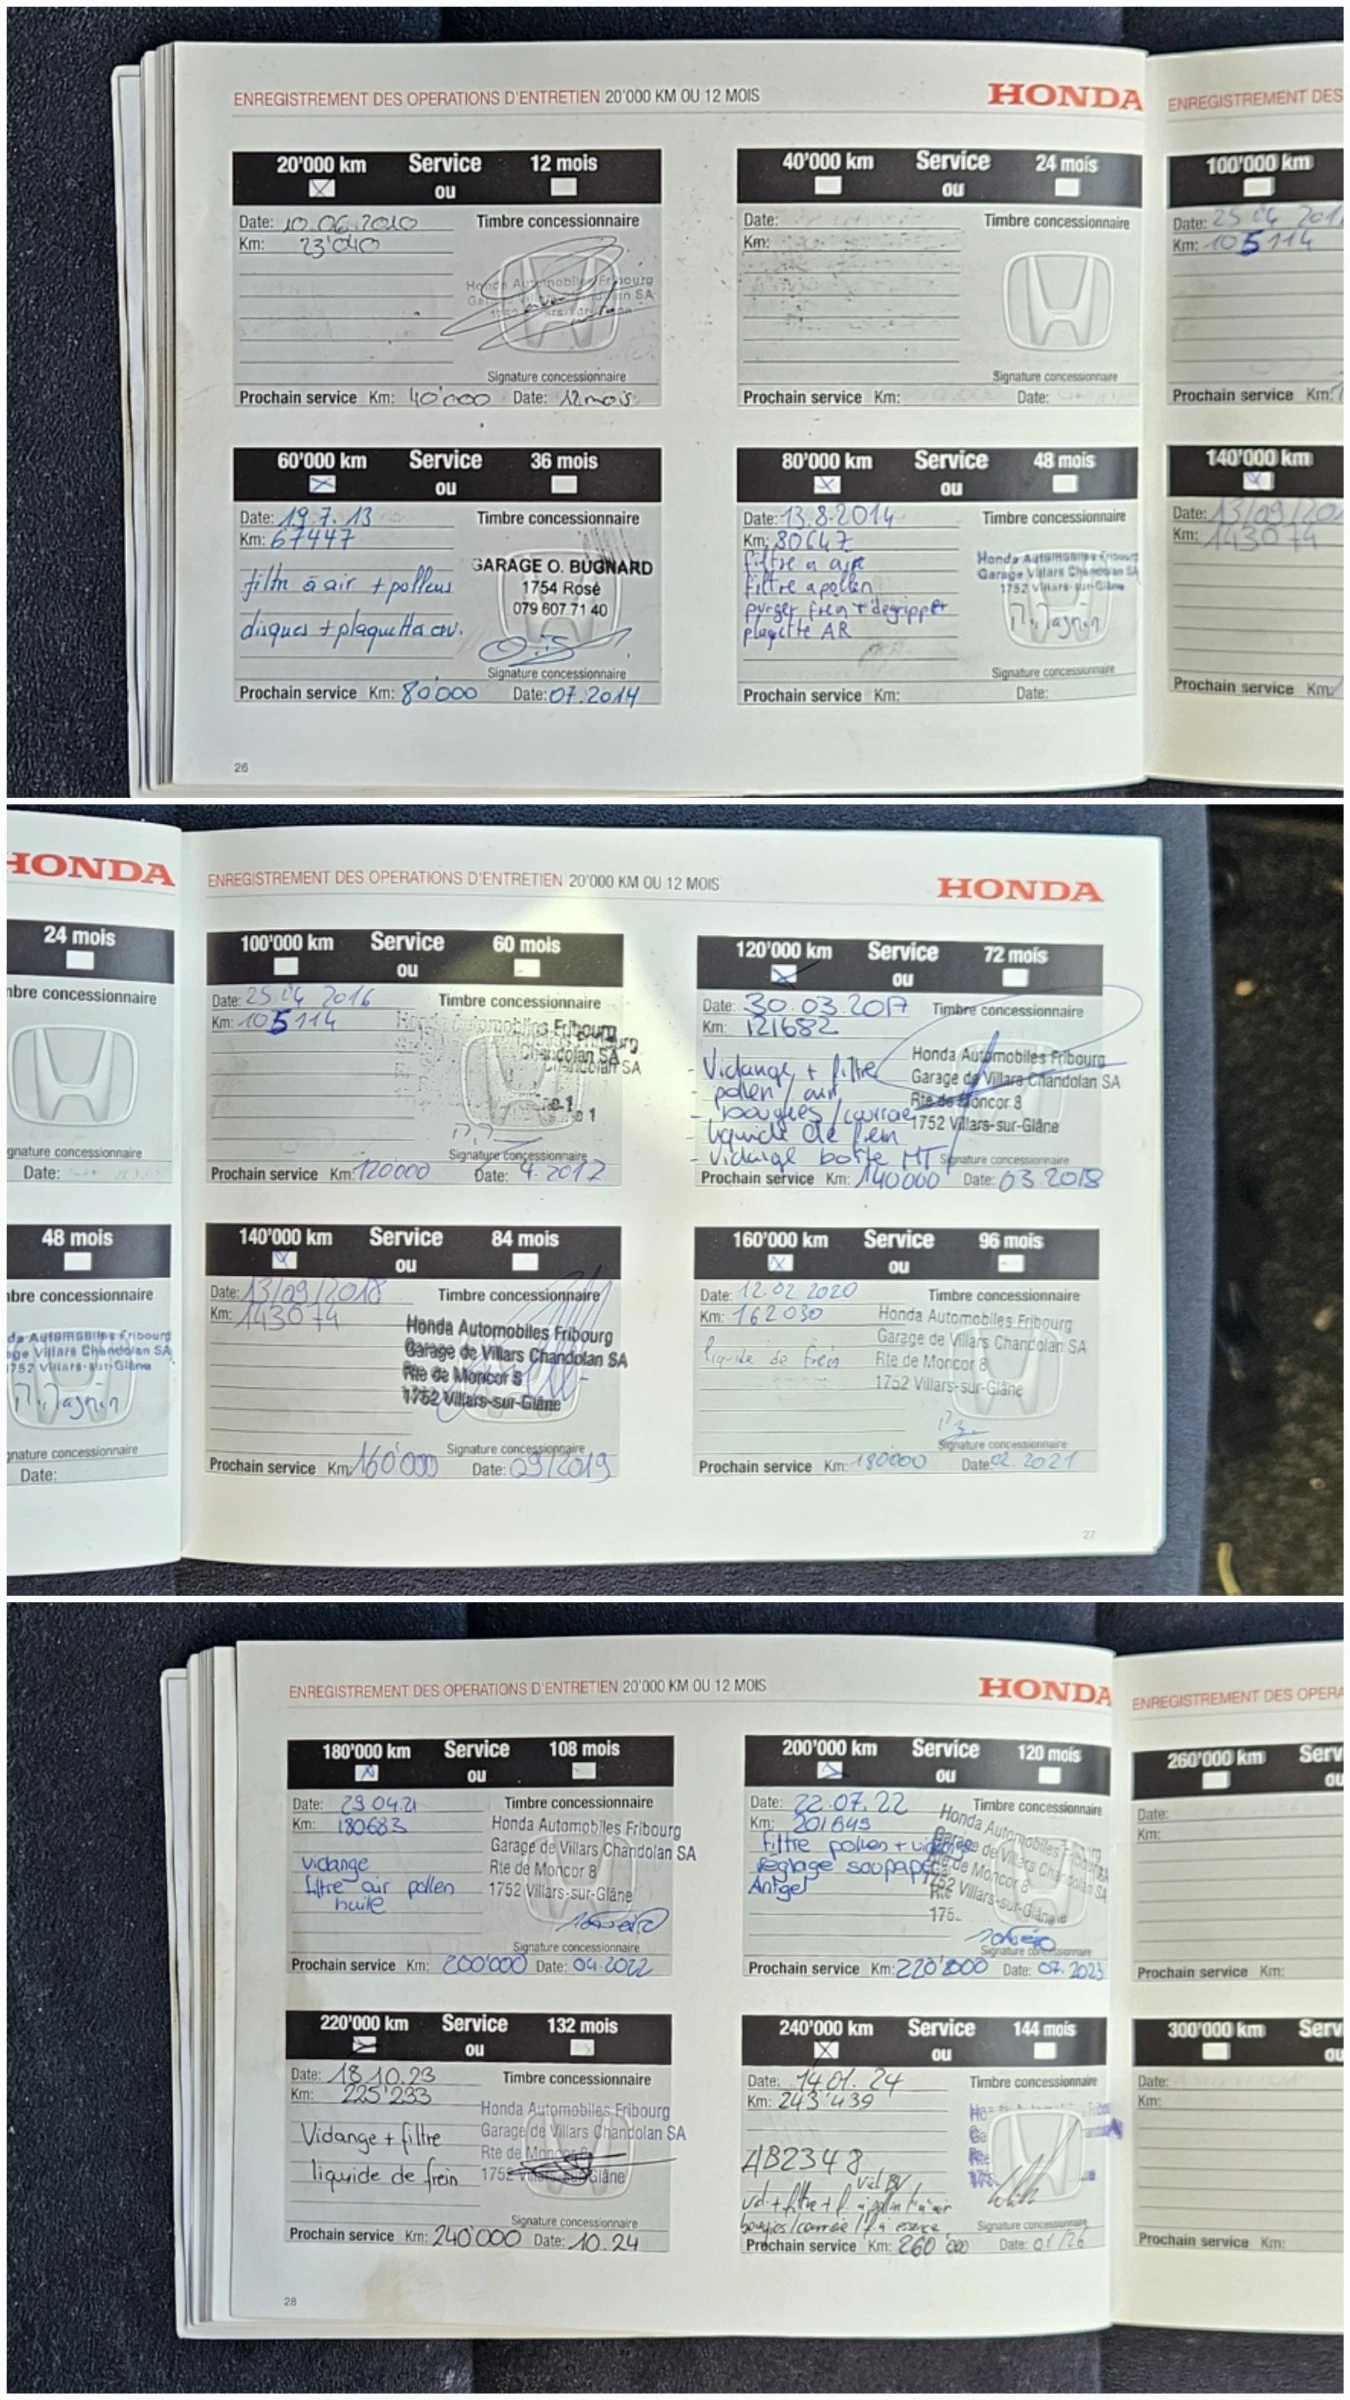 ENREGISTREMENT DES OPERATIONS D'ENTRETIEN 20'000 KM OU 12 MOIS
HONDA
20'000 km Service 12 mois
ou
Date: 10.06.2010 Timbre concessionnaire
Km: 23'040
Honda Automobiles Fribourg
Signature concessionnaire
Prochain service Km: 40'000 Date: 12 mois
40'000 km Service 24 mois
ou
Date: Timbre concessionnaire
Km:
Signature concessionnaire
Prochain service Km: Date:
60'000 km Service 36 mois
ou
Date: 19.7.13 Timbre concessionnaire
Km: 67447
GARAGE O. BUGNARD
1754 Rosé
079 607 71 40
filtr à air + pollens
disques + plaquetta av.
Signature concessionnaire
Prochain service Km: 80'000 Date: 07.2014
80'000 km Service 48 mois
ou
Date: 13.8.2014 Timbre concessionnaire
Km: 80647
filtre a air
filtre a pollen
purger frein + degripper
plaqette AR
Honda Automobiles Fribourg
Garage Villars Chandolan SA
1752 Villars-sur-Glâne
Signature concessionnaire
Prochain service Km: Date:
26
ENREGISTREMENT DES
100'000 km
Date: 25 04 201
Km: 105114
Prochain service Km:
140'000 km
Date: 13/09/20
Km: 143074
Prochain service Km:
HONDA
24 mois
bre concessionnaire
gnature concessionnaire
Date:
48 mois
bre concessionnaire
Signature concessionnaire
Date:
ENREGISTREMENT DES OPERATIONS D'ENTRETIEN 20'000 KM OU 12 MOIS
HONDA
100'000 km Service 60 mois
ou
Date: 25 04 2016 Timbre concessionnaire
Km: 105114
Honda Automobiles Fribourg
Chandolan SA
Signature concessionnaire
Prochain service Km: 120000 Date: 4.2017
120'000 km Service 72 mois
ou
Date: 30.03.2017 Timbre concessionnaire
Km: 121682
- Vidange + filtre
- pollen / air
- bougies / courroie
- liquide de frein
- vidange boîte MT
Honda Automobiles Fribourg
Garage de Villars Chandolan SA
Rte de Moncor 8
1752 Villars-sur-Glâne
Signature concessionnaire
Prochain service Km: 140000 Date: 03.2018
140'000 km Service 84 mois
ou
Date: 13/09/2018 Timbre concessionnaire
Km: 143074
Honda Automobiles Fribourg
Garage de Villars Chandolan SA
Rte de Moncor 8
1752 Villars-sur-Glâne
Signature concessionnaire
Prochain service Km: 160'000 Date: 09/2019
160'000 km Service 96 mois
ou
Date: 12.02.2020 Timbre concessionnaire
Km: 162030
liquide de frein
Honda Automobiles Fribourg
Garage de Villars Chandolan SA
Rte de Moncor 8
1752 Villars-sur-Glâne
Signature concessionnaire
Prochain service Km: 180000 Date: 02.2021
27
ENREGISTREMENT DES OPERATIONS D'ENTRETIEN 20'000 KM OU 12 MOIS
HONDA
180'000 km Service 108 mois
ou
Date: 29.04.21 Timbre concessionnaire
Km: 180683
vidange
filtre air pollen
huile
Honda Automobiles Fribourg
Garage de Villars Chandolan SA
Rte de Moncor 8
1752 Villars-sur-Glâne
Signature concessionnaire
Prochain service Km: 200'000 Date: 04.2022
200'000 km Service 120 mois
ou
Date: 22.07.22 Timbre concessionnaire
Km: 201845
filtre pollen +
reglage soupape
Antigel
Honda Automobiles Fribourg
Garage de Villars Chandolan SA
Rte de Moncor 8
1752 Villars-sur-Glâne
Signature concessionnaire
Prochain service Km: 220'000 Date: 07.2023
220'000 km Service 132 mois
ou
Date: 18.10.23 Timbre concessionnaire
Km: 225'233
Vidange + filtre
liquide de frein
Honda Automobiles Fribourg
Garage de Villars Chandolan SA
Rte de Moncor 8
1752 Villars-sur-Glâne
Signature concessionnaire
Prochain service Km: 240'000 Date: 10.24
240'000 km Service 144 mois
ou
Date: 14.01.24 Timbre concessionnaire
Km: 243'439
AB2348
bougies / courroie / f à essence
Signature concessionnaire
Prochain service Km: 260'000 Date: 01/26
28
ENREGISTREMENT DES OPERA
260'000 km Serv
ou
Date:
Km:
Prochain service Km:
300'000 km Serv
ou
Date:
Km:
Prochain service Km: